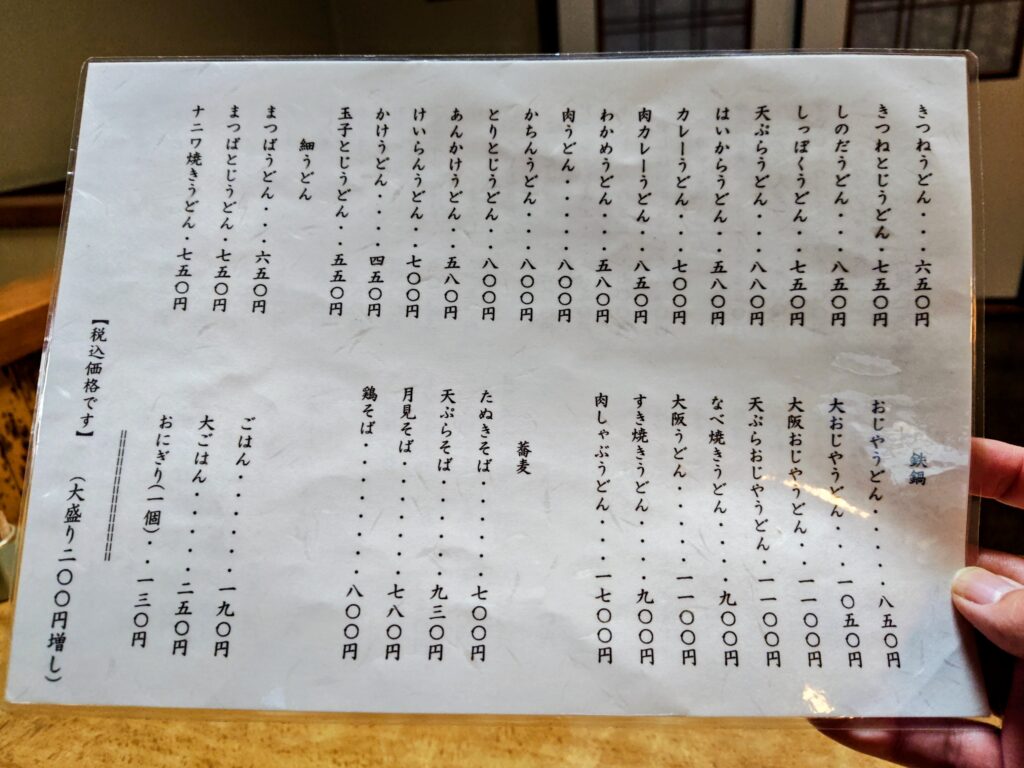 きつねうどん・・・六五〇円
きつねとじうどん・七五〇円
しのだうどん・・・八五〇円
しっぽくうどん・・七五〇円
天ぷらうどん・・・八八〇円
はいからうどん・・五八〇円
カレーうどん・・・七〇〇円
肉カレーうどん・・八五〇円
わかめうどん・・・五八〇円
肉うどん・・・・・八〇〇円
かちんうどん・・・八〇〇円
とりとじうどん・・八〇〇円
あんかけうどん・・五八〇円
けいらんうどん・・七〇〇円
かけうどん・・・・四五〇円
玉子とじうどん・・五五〇円
細うどん
まつばうどん・・・六五〇円
まつばとじうどん・七五〇円
ナニワ焼きうどん・七五〇円
鉄鍋
おじやうどん・・・・八五〇円
大おじやうどん・・一〇五〇円
大阪おじやうどん・一一〇〇円
天ぷらおじやうどん・一一〇〇円
なべ焼きうどん・・・九〇〇円
大阪うどん・・・・一一〇〇円
すき焼きうどん・・・九〇〇円
肉しゃぶうどん・・一七〇〇円
蕎麦
たぬきそば・・・・・七〇〇円
天ぷらそば・・・・・九三〇円
月見そば・・・・・・七八〇円
鶏そば・・・・・・・八〇〇円
ごはん・・・・・一九〇円
大ごはん・・・・二五〇円
おにぎり(一個)・・一三〇円
【税込価格です】 (大盛り二〇〇円増し)